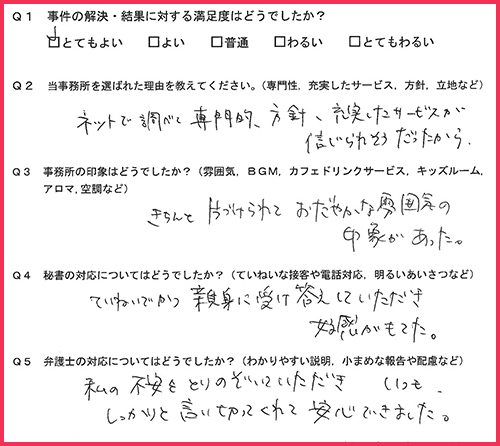 Q1 事件の解決・結果に対する満足度はどうでしたか？
□とてもよい □よい □普通 □わるい □とてもわるい
Q2 当事務所を選ばれた理由を教えてください。（専門性，充実したサービス，方針，立地など）
ネットで調べ 専門的、方針、充実したサービスが
信じられそうだったから．
Q3 事務所の印象はどうでしたか？（雰囲気，BGM，カフェドリンクサービス，キッズルーム，
アロマ,空調など）
きちんと 片づけられて おだやかな雰囲気の
印象があった。
Q4 秘書の対応についてはどうでしたか？（ていねいな接客や電話対応，明るいあいさつなど）
ていねいでかつ 親身に受け答えしていただき
好感がもてた。
Q5 弁護士の対応についてはどうでしたか？（わかりやすい説明，小まめな報告や配慮など）
私の不安をとりのぞいていただき いつも、
しっかりと言い切ってくれて 安心できました。